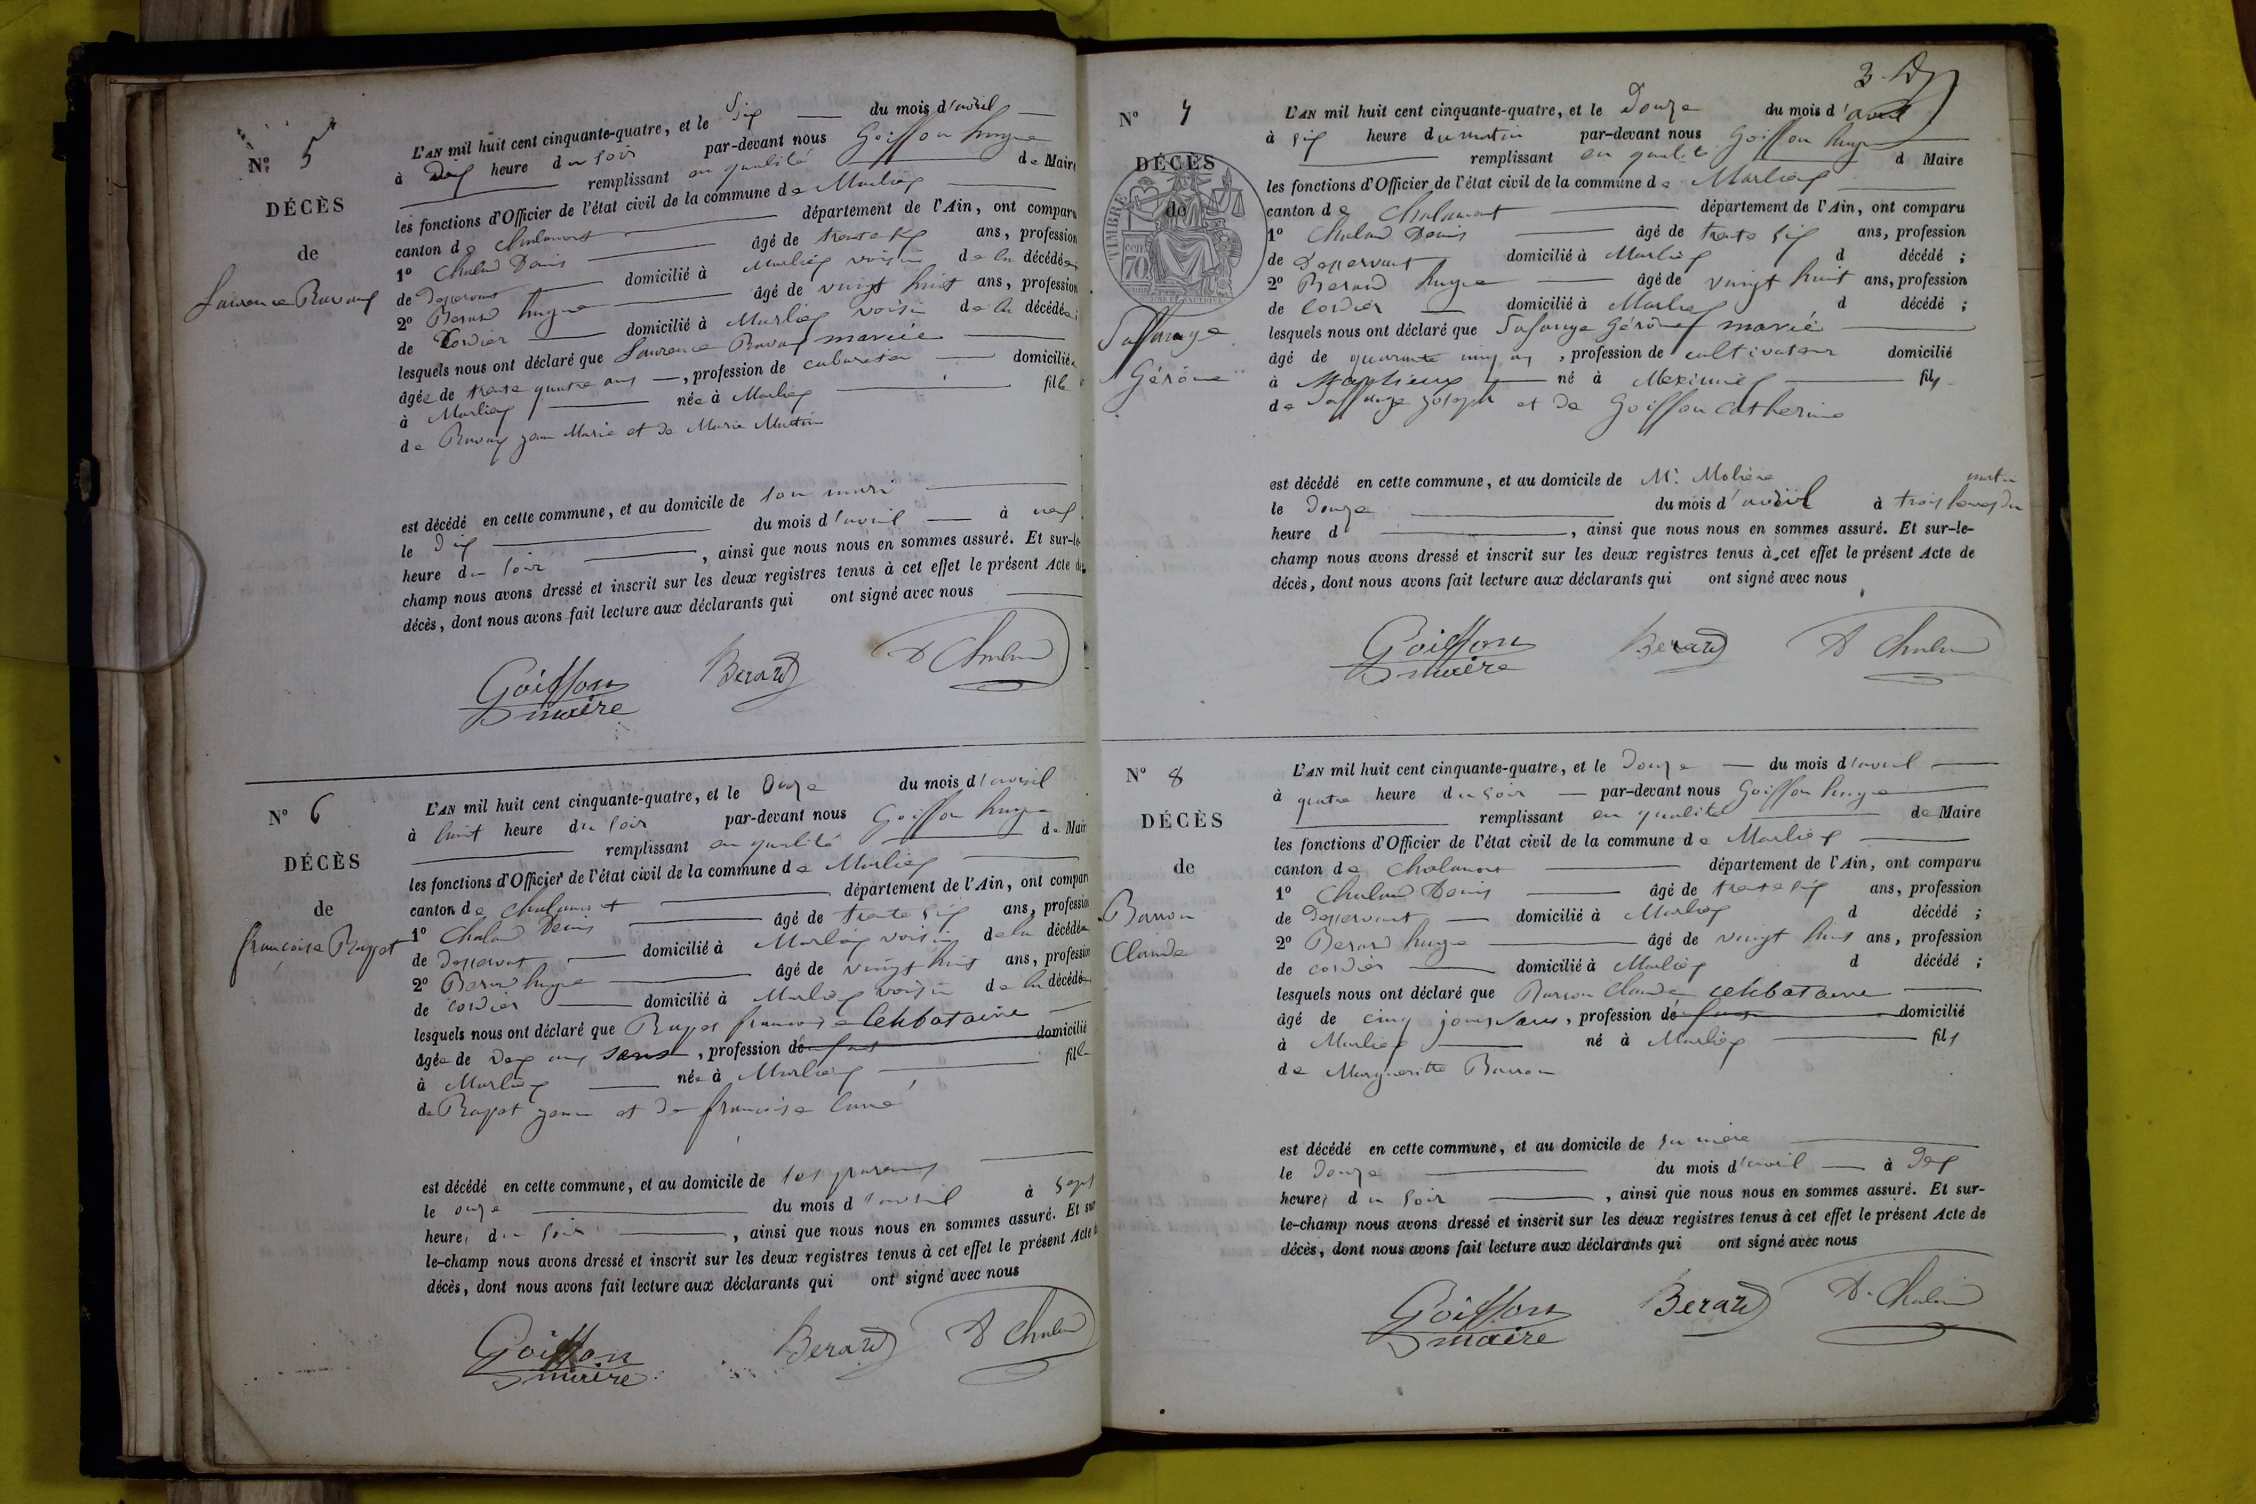 N° 5
DÉCÈS
de
Laurence Ravoux
L'AN mil huit cent cinquante-quatre, et le Six du mois d'avril
à heure du soir par-devant nous Goiffon hugue
remplissant en qualité de Maire
les fonctions d'Officier de l'état civil de la commune de Marlieux
canton de Chalamont département de l'Ain, ont comparu
1° Chaland Denis âgé de trente six ans, profession
de desservant domicilié à Marlieux voisin de la décédée
2° Berard hugue âgé de vingt huit ans, profession
de Cordier domicilié à Marlieux voisin de la décédée;
lesquels nous ont déclaré que Laurence mariée
âgée de trente quatre ans, profession de domicilié
à Marlieux née à Marlieux fille
de jean Marie et de Marie
est décédé en cette commune, et au domicile de son mari
le du mois d'avril à
heure du soir, ainsi que nous nous en sommes assuré. Et sur-le-
champ nous avons dressé et inscrit sur les deux registres tenus à cet effet le présent Acte de
décès, dont nous avons fait lecture aux déclarants qui ont signé avec nous
Goiffon Berard D Chaland
maire
N° 6
DÉCÈS
de
françoise Rappet
L'AN mil huit cent cinquante-quatre, et le Onze du mois d'avril
à huit heure du soir par-devant nous Goiffon hugue
remplissant en qualité de Maire
les fonctions d'Officier de l'état civil de la commune de Marlieux
canton de Chalamont département de l'Ain, ont comparu
1° Chaland Denis âgé de trente six ans, profession
de desservant domicilié à Marlieux voisin de la décédée
2° Berard hugue âgé de vingt huit ans, profession
de cordier domicilié à Marlieux voisin de la décédée
lesquels nous ont déclaré que Rappet françoise Celibataire
âgée de ans sans, profession de domicilié
à Marlieux née à Marlieux fille
de Rappet et de françoise
est décédé en cette commune, et au domicile de ses parents
le onze du mois d'avril à sept
heure, du soir, ainsi que nous nous en sommes assuré. Et sur
le-champ nous avons dressé et inscrit sur les deux registres tenus à cet effet le présent Acte de
décès, dont nous avons fait lecture aux déclarants qui ont signé avec nous
Goiffon Berard D Chaland
maire
3.
N° 7
DÉCÈS
de
Saffange
Gérôme
TIMBRE
70 cent
L'AN mil huit cent cinquante-quatre, et le Douze du mois d'avril
à six heure du matin par-devant nous Goiffon hugue
remplissant en qualité d Maire
les fonctions d'Officier de l'état civil de la commune de Marlieux
canton de Chalamont département de l'Ain, ont comparu
1° Chaland Denis âgé de trente six ans, profession
de desservant domicilié à Marlieux d décédé;
2° Berard hugue âgé de vingt huit ans, profession
de Cordier domicilié à Marlieux d décédé;
lesquels nous ont déclaré que Gérôme marié
âgé de quarante cinq ans, profession de cultivateur domicilié
à Marlieux né à Meximieux fils
de Saffange joseph et de Goiffon Catherine
est décédé en cette commune, et au domicile de Mr. Molière
le douze du mois d'avril à trois heures du matin
heure d, ainsi que nous nous en sommes assuré. Et sur-le-
champ nous avons dressé et inscrit sur les deux registres tenus à cet effet le présent Acte de
décès, dont nous avons fait lecture aux déclarants qui ont signé avec nous
Goiffon Berard D Chaland
maire
N° 8
DÉCÈS
de
Barron
Claude
L'AN mil huit cent cinquante-quatre, et le douze du mois d'avril
à quatre heure du soir par-devant nous Goiffon hugue
remplissant en qualité de Maire
les fonctions d'Officier de l'état civil de la commune de Marlieux
canton de Chalamont département de l'Ain, ont comparu
1° Chaland Denis âgé de trente six ans, profession
de desservant domicilié à Marlieux d décédé;
2° Berard hugue âgé de vingt huit ans, profession
de cordier domicilié à Marlieux d décédé;
lesquels nous ont déclaré que Barron Claude celibataire
âgé de cinq jours sans, profession de domicilié
à Marlieux né à Marlieux fils
de Marguerite Barron
est décédé en cette commune, et au domicile de sa mère
le douze du mois d'avril à
heure, du soir, ainsi que nous nous en sommes assuré. Et sur-
le-champ nous avons dressé et inscrit sur les deux registres tenus à cet effet le présent Acte de
décès, dont nous avons fait lecture aux déclarants qui ont signé avec nous
Goiffon Berard D. Chaland
maire